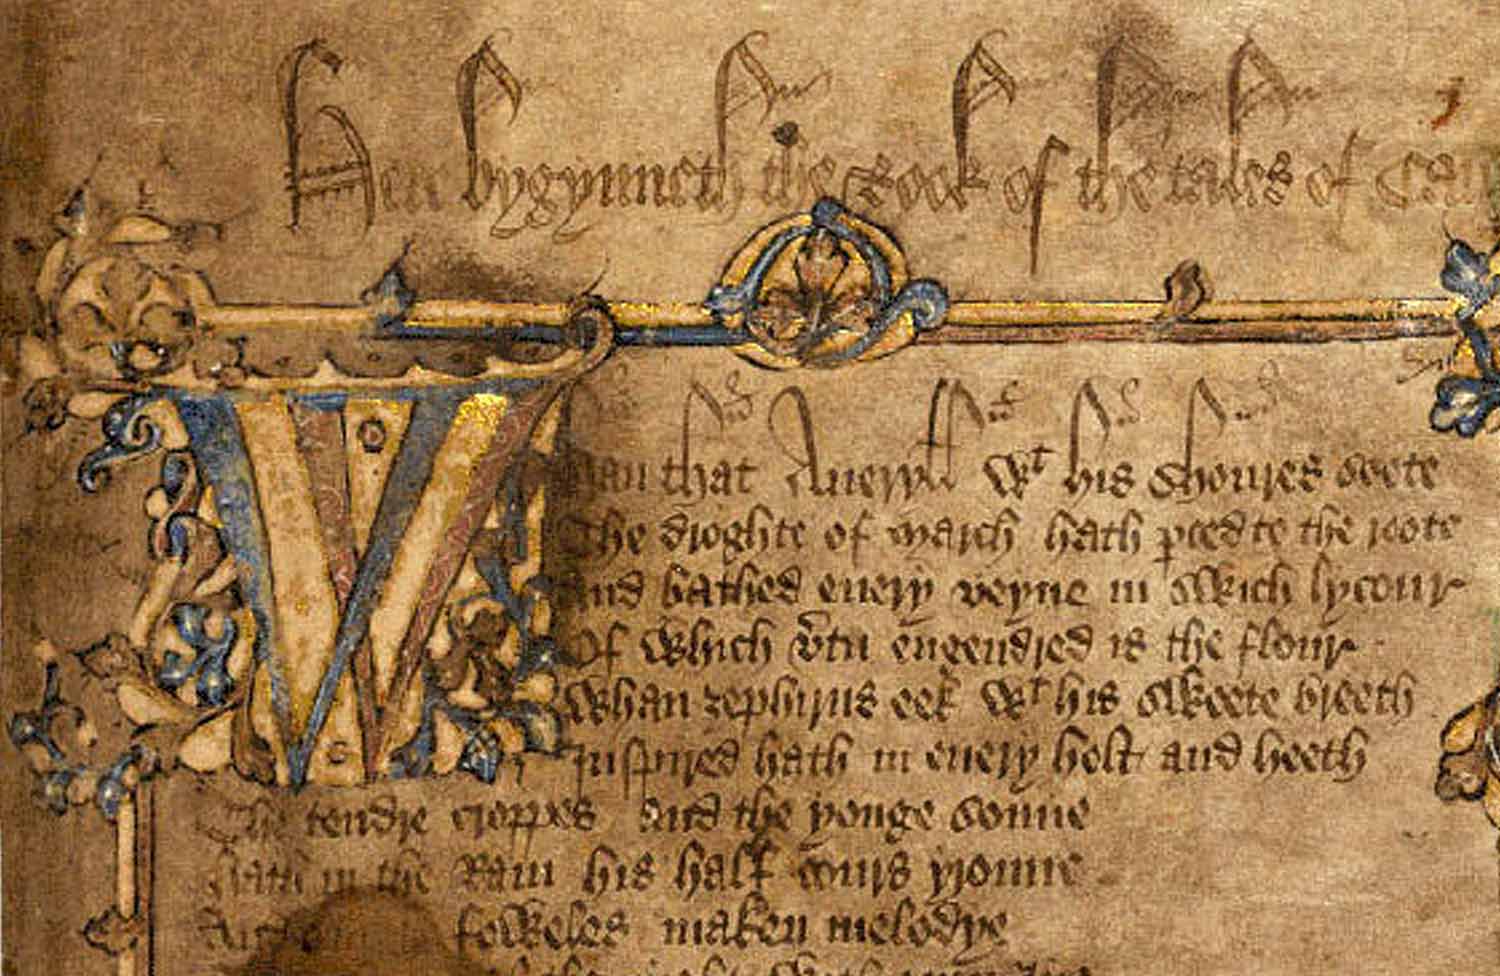 Here bygynneth the Book of the tales of Cau
Whan that Aueryłł wt his shoures soote
The droghte of march hath ꝑced to the roote
And bathed euery veyne in swich lycour
Of which v̄tu engendred is the flour
Whan zephirus eek wt his sweete breeth
Inspired hath in euery holt and heeth
The tendre croppes and the yonge sonne
Hath in the Ram his half cours yronne
And foweles maken melodye